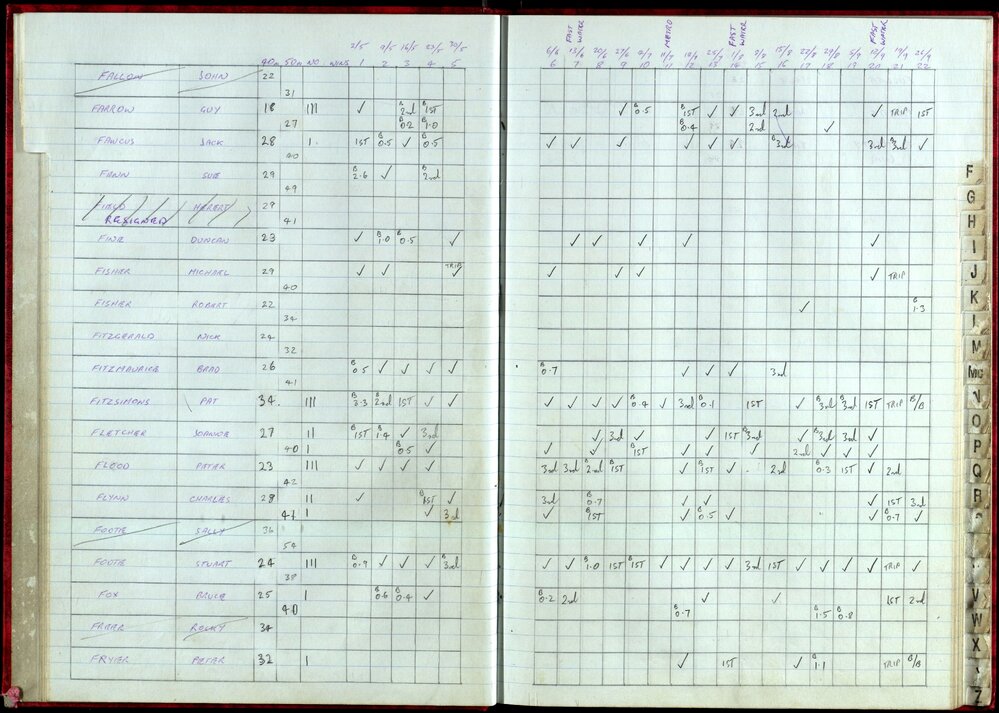 FAST WATER METRO FAST WATER FAST WATER
2/5 9/5 16/5 23/5 30/5 6/6 13/6 20/6 27/6 4/7 11/7 25/7 1/8 15/8 29/8 5/9 19/9
40m 50m NO. WINS 1 2 3 4 5 6 7 8 9 10 11 12 13 14 15 16 17 18 19 20 21 22
FALLON JOHN 22
31
FARROW GUY 18 III ✓ B 2nd B 1ST ✓ B 0.5 B 1ST ✓ ✓ 3rd 2nd ✓ TRIP 1ST
27 0.2 1.0 B 0.4 2nd ✓
FAWCUS JACK 28 I 1ST B 0.5 ✓ B 0.5 ✓ ✓ ✓ ✓ ✓ ✓ B 3rd 3rd B 3rd ✓
40
FENN SUE 29 B 2.6 ✓ B 2nd
49
FIELD HERBERT 29
RESIGNED 41
FINE DUNCAN 23 ✓ B 1.0 B 0.5 ✓ ✓ ✓ ✓ ✓ ✓
FISHER MICHAEL 29 ✓ ✓ TRIP ✓ ✓ ✓ ✓ ✓ TRIP
40
FISHER ROBERT 22 ✓ B 1.3
34
FITZGERALD NICK 24
32
FITZMAURICE BRAD 26 B 0.5 ✓ ✓ ✓ ✓ B 0.7 ✓ ✓ ✓ 3rd
41
FITZSIMONS PAT 34 III B 3.3 B 2nd 1ST ✓ ✓ ✓ ✓ ✓ ✓ B 0.4 ✓ 3rd B 0.1 1ST ✓ B 3rd B 3rd 1ST TRIP B/B
FLETCHER JOANNE 27 II B 1ST B 1.4 ✓ 3rd ✓ 3rd ✓ ✓ 1ST B 3rd ✓ B 3rd 3rd ✓
40 I B 0.5 ✓ ✓ ✓ B 1ST ✓ ✓ ✓ 2nd ✓ ✓ ✓
FLOOD PETER 23 III ✓ ✓ ✓ ✓ 3rd 3rd B 2nd B 1ST ✓ B 1ST ✓ 2nd B 0.3 1ST ✓ 2nd
42
FLYNN CHARLES 28 II ✓ B 1ST ✓ 3rd B 0.7 ✓ ✓ ✓ 1ST 3rd
41 I ✓ 3rd ✓ B 1ST ✓ B 0.5 ✓ ✓ B 0.7 ✓
FOOTE SALLY 36
54
FOOTE STUART 24 III B 0.9 ✓ ✓ ✓ B 3rd ✓ ✓ B 1.0 1ST B 1ST ✓ ✓ ✓ ✓ 3rd 1ST ✓ ✓ ✓ ✓ TRIP ✓
38
FOX BRUCE 25 I B 0.6 B 0.4 ✓ B 0.2 2nd ✓ ✓ 1ST 2nd
40 B 0.7 B 1.5 B 0.8
FREER ROCKY 34
FRYER PETER 32 I ✓ 1ST ✓ B 1.1 TRIP B/B
F
G
H
I
J
K
L
M
Mc
N
O
P
Q
R
V
W
X
Z